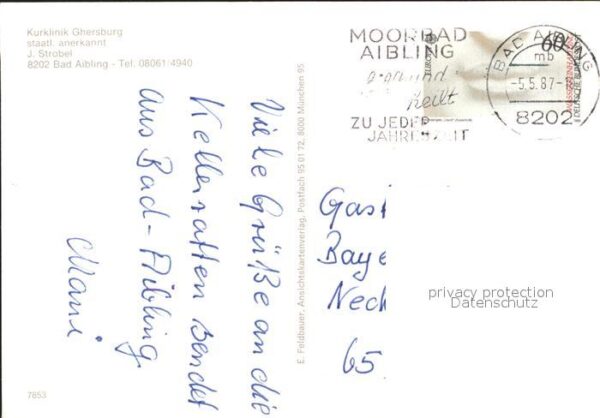 Kurklinik Ghersburg
staatl. anerkannt
J. Strobel
8202 Bad Aibling - Tel. 08061/4940
MOORBAD
AIBLING
gesund
heilt
ZU JEDER
JAHRESZEIT
60
DEUTSCHE BUNDESPOST
BAD AIBLING
mb
-5.5.87-
8202
Viele Grüße an die
Kellerratten sendet
aus Bad-Aibling
Mani
E. Feldbauer, Ansichtskartenverlag, Postfach 95 01 72, 8000 München 95
Gast
Baye
Neck
65
privacy protection
Datenschutz
7853